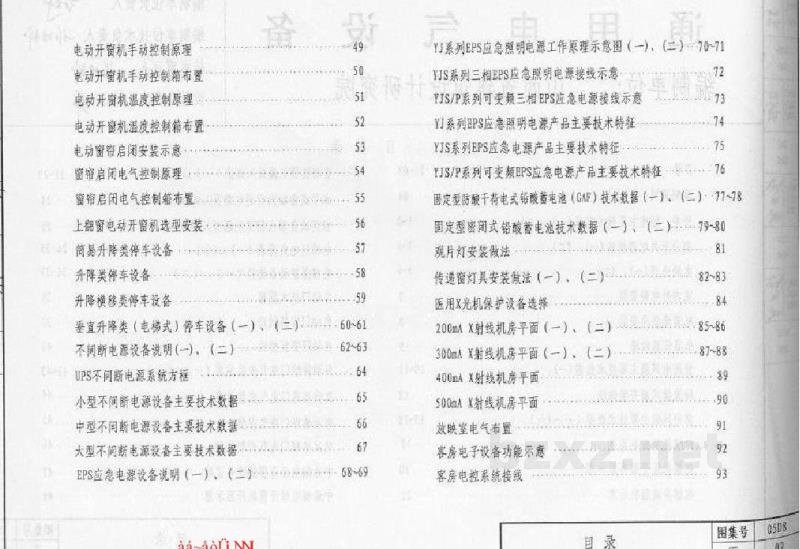 电动开窗机手动控制原理 49
电动开窗机手动控制箱布置 50
电动开窗机温度控制原理 51
电动开窗机温度控制箱布置 52
电动窗帘启闭安装示意 53
窗帘启闭电气控制原理 54
窗帘启闭电气控制箱布置 55
上翻窗电动开窗机选型安装 56
简易升降类停车设备 57
升降类停车设备 58
升降横移类停车设备 59
垂直升降类（电梯式）停车设备（一）、（二） 60~61
不间断电源设备说明（一）、（二） 62~63
UPS不间断电源系统方框 64
小型不间断电源设备主要技术数据 65
中型不间断电源设备主要技术数据 66
大型不间断电源设备主要技术数据 67
EPS应急电源设备说明（一）、（二） 68~69
YJ系列EPS应急照明电源工作原理示意图（一）、（二） 70~71
YJS系列三相EPS应急照明电源接线示意 72
YJS/P系列可变频三相EPS应急电源接线示意 73
YJ系列EPS应急照明电源产品主要技术特征 74
YJS系列EPS应急电源产品主要技术特征 75
YJS/P系列可变频EPS应急电源产品主要技术特征 76
固定型防酸干荷电式铅酸蓄电池（GAF）技术数据（一）、（二） 77~78
固定型密闭式铅酸蓄电池技术数据（一）、（二） 79~80
观片灯安装做法 81
传递窗灯具安装做法（一）、（二） 82~83
医用X光机保护设备选择 84
200mA X射线机房平面（一）、（二） 85~86
300mA X射线机房平面（一）、（二） 87~88
400mA X射线机房平面 89
500mA X射线机房平面 90
放映室电气布置 91
客房电子设备功能示意 92
客房电控系统接线 93
bzxz.net
目录 图集号 05D8